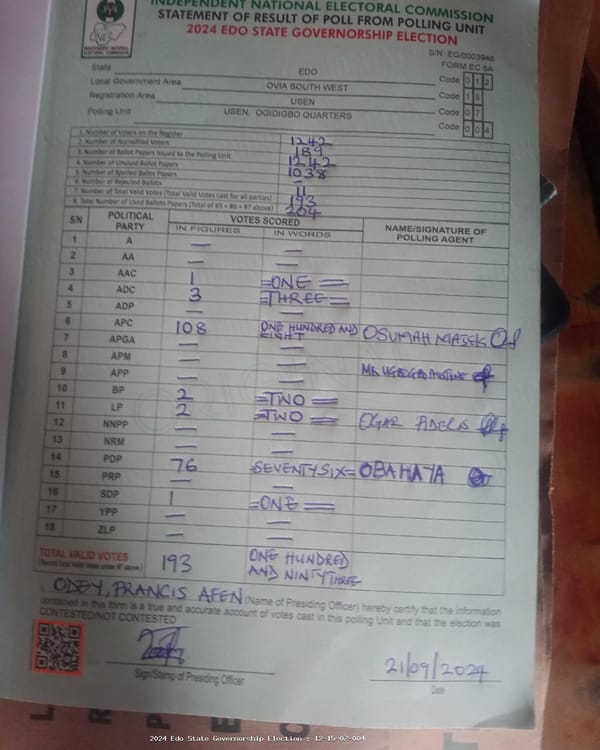 INDEPENDENT NATIONAL ELECTORAL COMMISSION
STATEMENT OF RESULT OF POLL FROM POLLING UNIT
2024 EDO STATE GOVERNORSHIP ELECTION
S/N: EG/0003046
FORM EC 8A
State EDO Code 0 1 2
Local Government Area OVIA SOUTH WEST Code 1 5
Registration Area USEN Code 0 7
Polling Unit USEN, OGIDIGBO QUARTERS Code 0 0 4
1. Number of Voters on the Register 1242
2. Number of Accredited Voters 189
3. Number of Ballot Papers Issued to the Polling Unit 1242
4. Number of Unused Ballot Papers 1038
5. Number of Spoiled Ballot Papers —
6. Number of Rejected Ballots 11
7. Number of Total Valid Votes (Total Valid Votes cast for all parties) 193
8. Total Number of Used Ballots Papers (Total of #5 + #6 + #7 above) 204
S/N POLITICAL PARTY VOTES SCORED NAME/SIGNATURE OF POLLING AGENT
IN FIGURES IN WORDS
1 A — —
2 AA — —
3 AAC 1 =ONE=
4 ADC 3 =THREE=
5 ADP — —
6 APC 108 ONE HUNDRED AND EIGHT
7 APGA — —
8 APM — —
9 APP — —
10 BP 2 =TWO=
11 LP 2 =TWO=
12 NNPP — —
13 NRM — —
14 PDP 76 =SEVENTYSIX=
15 PRP — —
16 SDP 1 =ONE=
17 YPP — —
18 ZLP — —
TOTAL VALID VOTES 193 ONE HUNDRED AND NINTYTHREE
I, ODEY, FRANCIS AFEN (Name of Presiding Officer) hereby certify that the information
contained in this form is a true and accurate account of votes cast in this polling Unit and that the election was
CONTESTED/NOT CONTESTED
21/09/2024
Sign/Stamp of Presiding Officer Date
2024 Edo State Governorship Election : 12-15-07-004